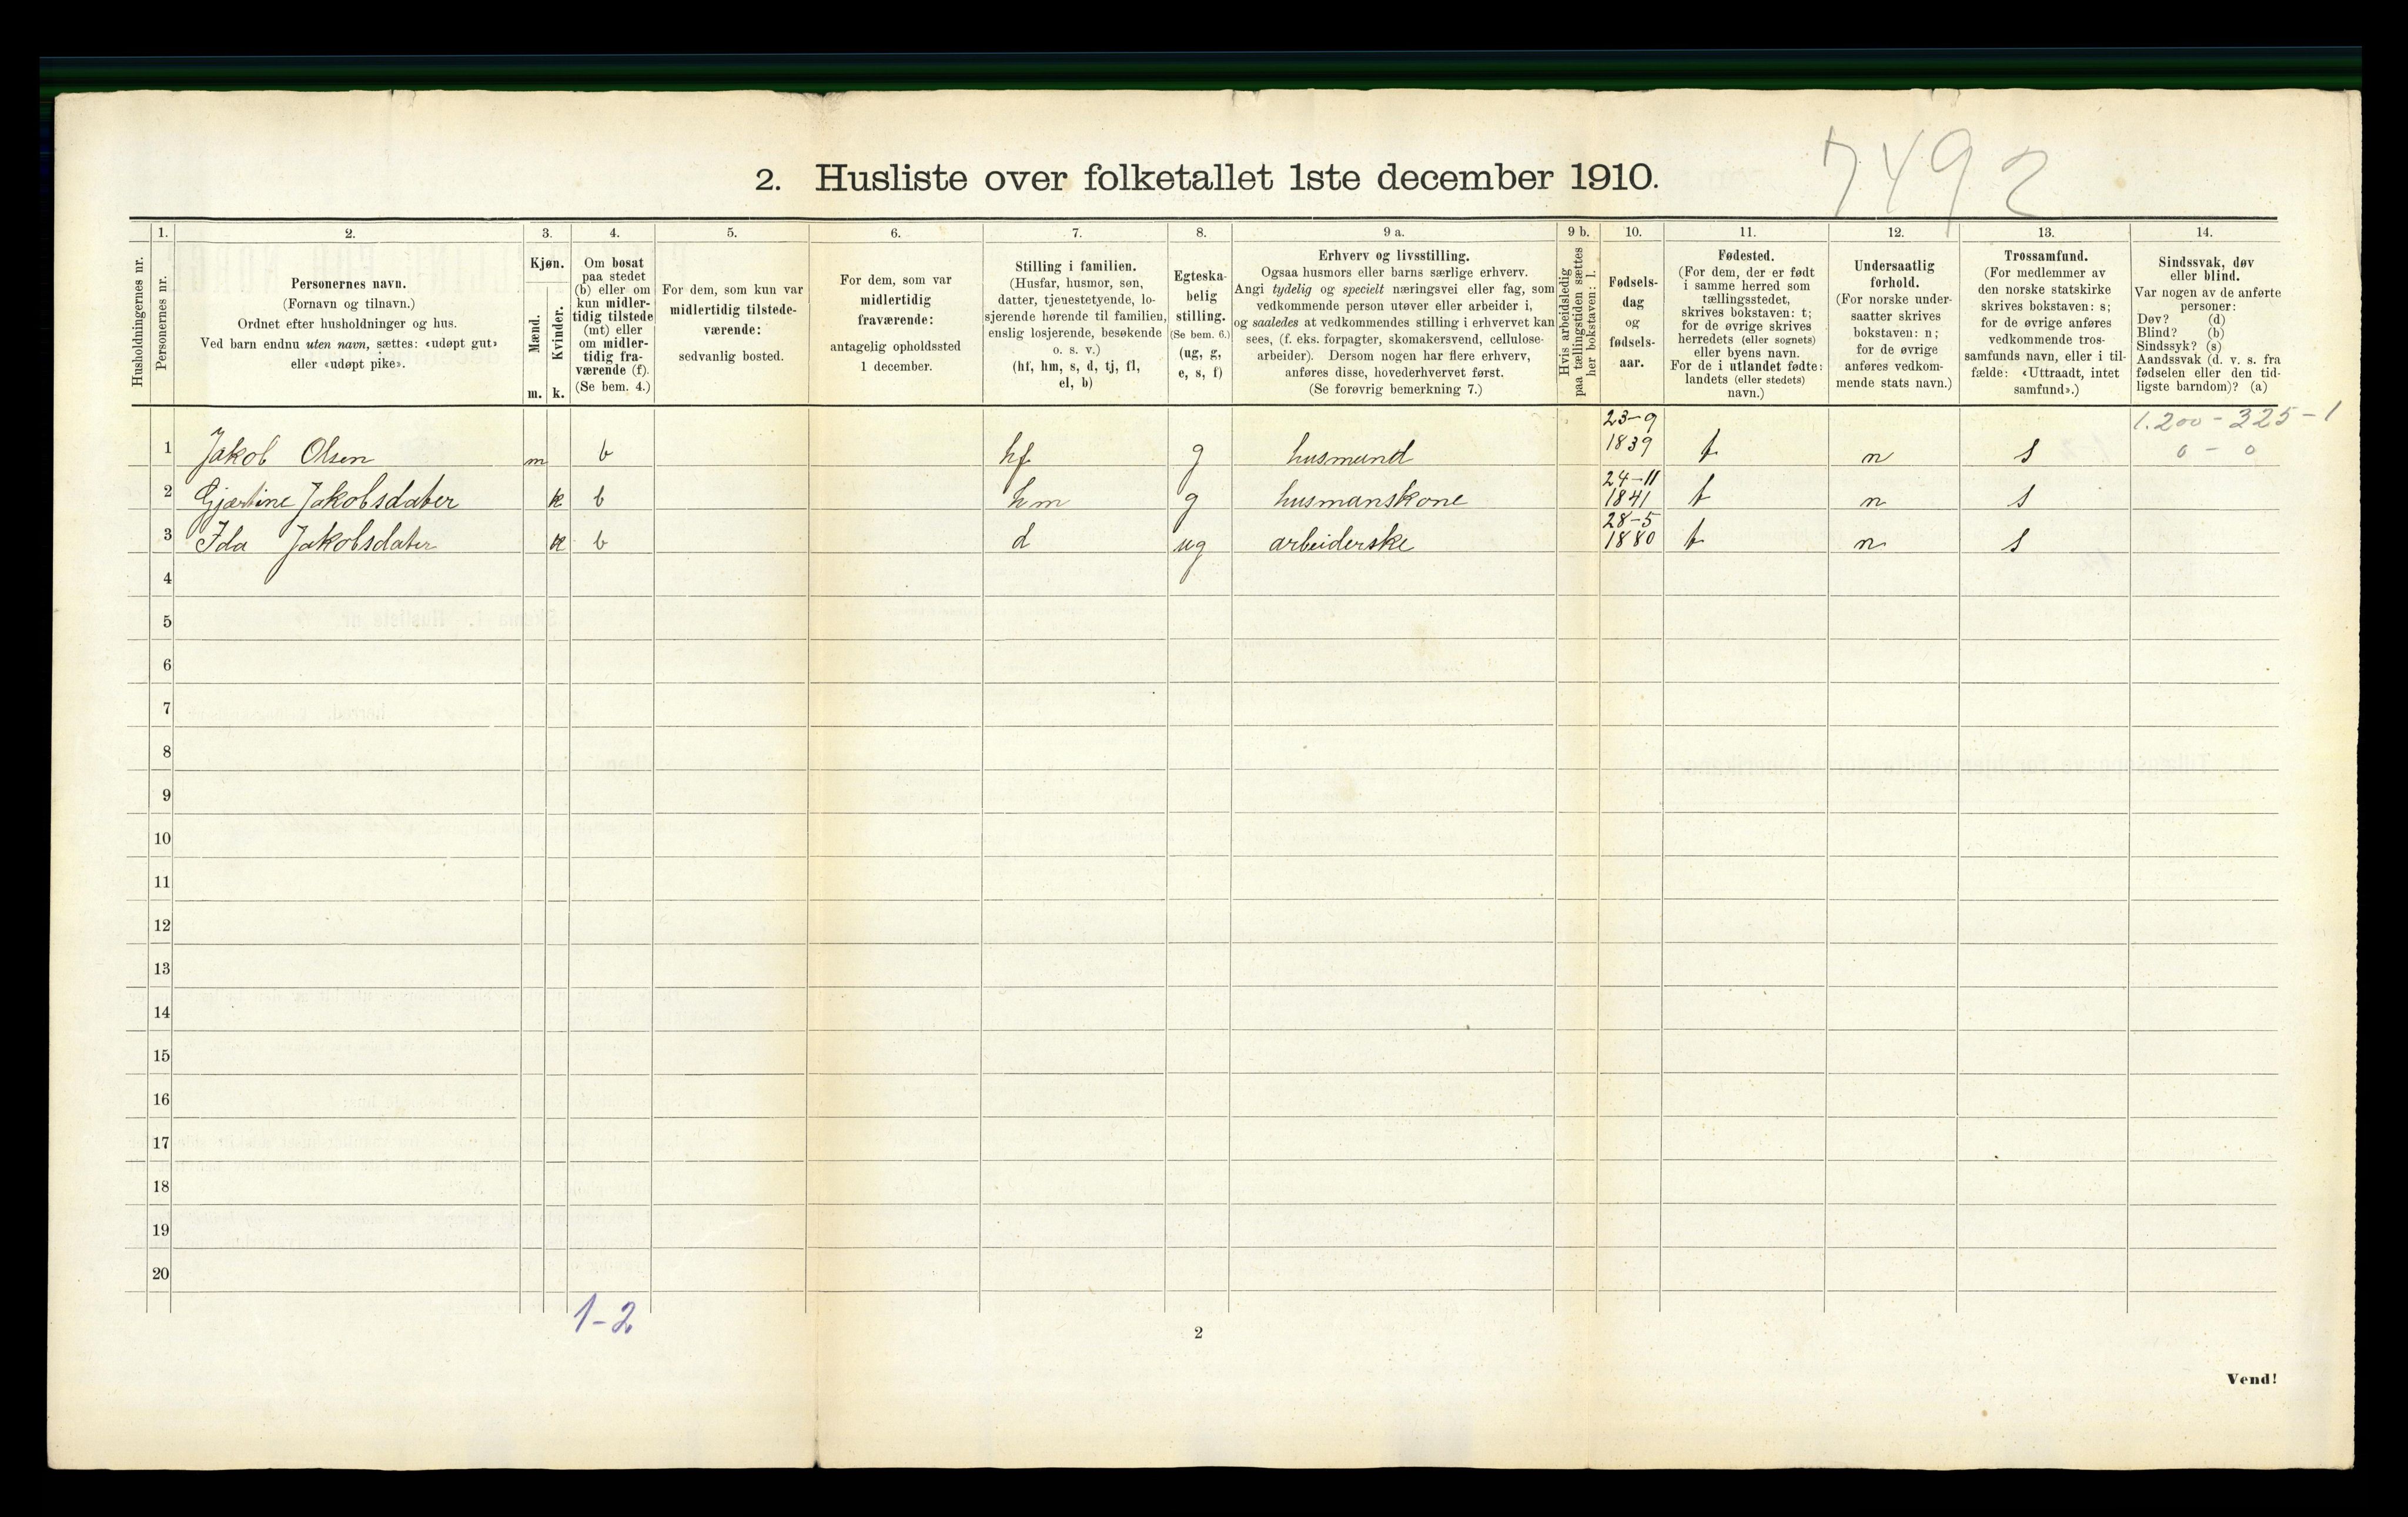 7492
2. Husliste over folketallet 1ste december 1910.
Husholdningernes nr.
1.
Personernes nr.
2.
Personernes navn.
(Fornavn og tilnavn.)
Ordnet efter husholdninger og hus.
Ved barn endnu uten navn, sættes: «udøpt gut»
eller «udøpt pike».
3.
Kjøn.
Mænd.
Kvinder.
m. k.
4.
Om bosat
paa stedet
(b) eller om
kun midler-
tidig tilstede
(mt) eller
om midler-
tidig fra-
værende (f).
(Se bem. 4.)
5.
For dem, som kun var
midlertidig tilstede-
værende:
sedvanlig bosted.
6.
For dem, som var
midlertidig
fraværende:
antagelig opholdssted
1 december.
7.
Stilling i familien.
(Husfar, husmor, søn,
datter, tjenestetyende, lo-
sjerende hørende til familien,
enslig losjerende, besøkende
o. s. v.)
(hf, hm, s, d, tj, fl,
el, b)
8.
Egteska-
belig
stilling.
(Se bem. 6.)
(ug, g,
e, s, f)
9 a.
Erhverv og livsstilling.
Ogsaa husmors eller barns særlige erhverv.
Angi tydelig og specielt næringsvei eller fag, som
vedkommende person utøver eller arbeider i,
og saaledes at vedkommendes stilling i erhvervet kan
sees, (f. eks. forpagter, skomakersvend, cellulose-
arbeider). Dersom nogen har flere erhverv,
anføres disse, hovederhvervet først.
(Se forøvrig bemerkning 7.)
9 b.
Hvis arbeidsledig
paa tællingstiden sættes
her bokstaven: l.
10.
Fødsels-
dag
og
fødsels-
aar.
11.
Fødested.
(For dem, der er født
i samme herred som
tællingsstedet,
skrives bokstaven: t;
for de øvrige skrives
herredets (eller sognets)
eller byens navn.
For de i utlandet fødte:
landets (eller stedets)
navn.)
12.
Undersaatlig
forhold.
(For norske under-
saatter skrives
bokstaven: n;
for de øvrige
anføres vedkom-
mende stats navn.)
13.
Trossamfund.
(For medlemmer av
den norske statskirke
skrives bokstaven: s;
for de øvrige anføres
vedkommende tros-
samfunds navn, eller i til-
fælde: «Uttraadt, intet
samfund».)
14.
Sindssvak, døv
eller blind.
Var nogen av de anførte
personer:
Døv? (d)
Blind? (b)
Sindssyk? (s)
Aandssvak (d. v. s. fra
fødselen eller den tid-
ligste barndom)? (a)
1.200 - 325 - 1
0 - 0
1 Jakob Olsen m b hf g husmand 23-9 1839 t n s
2 Gjærtine Jakobsdater k b hm g husmanskone 24-11 1841 t n s
3 Ida Jakobsdater k b d ug arbeiderske 28-5 1880 t n s
4
5
6
7
8
9
10
11
12
13
14
15
16
17
18
19
20
1-2
2
Vend!